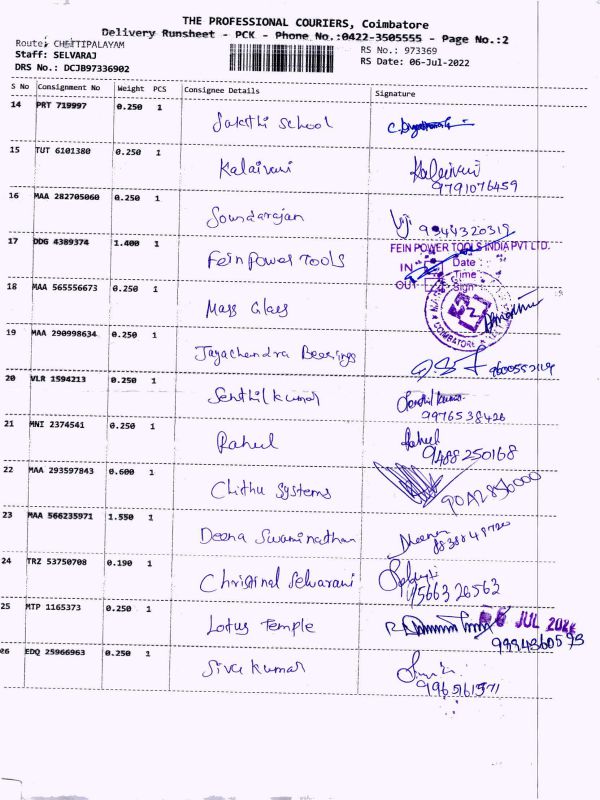 THE PROFESSIONAL COURIERS, Coimbatore
Delivery Runsheet - PCK - Phone No.:0422-3505555 - Page No.:2
Route: CHETTIPALAYAM
Staff: SELVARAJ
DRS No.: DCJB97336902
RS No.: 973369
RS Date: 06-Jul-2022
S No Consignment No Weight PCS Consignee Details Signature
14 PRT 719997 0.250 1
Sakthi School
15 TUT 6101380 0.250 1
Kalaivani Kalaivani
9791076459
16 MAA 282705060 0.250 1
Soundarajan Viji 9344320319
17 DDG 4389374 1.400 1
Fein Power Tools
FEIN POWER TOOLS INDIA PVT LTD.
IN Date :
Time :
OUT Sign
18 MAA 565556673 0.250 1
Mass Glass
COIMBATORE
19 MAA 290998634 0.250 1
Jayachendra Beerings
20 VLR 1594213 0.250 1
Senthil kumar Senthil kumar
9976538426
21 MNI 2374541 0.250 1
Rahul Rahul
9488250168
22 MAA 293597843 0.600 1
Chithu Systems
23 MAA 566235971 1.550 1
Deena Swaminathan Deena
24 TRZ 53750708 0.190 1
Christinal Selvarani
9566326563
25 MTP 1165373 0.250 1
Lotus Temple
JUL
9994360593
26 EDQ 25966963 0.250 1
Siva kumar
9965161571